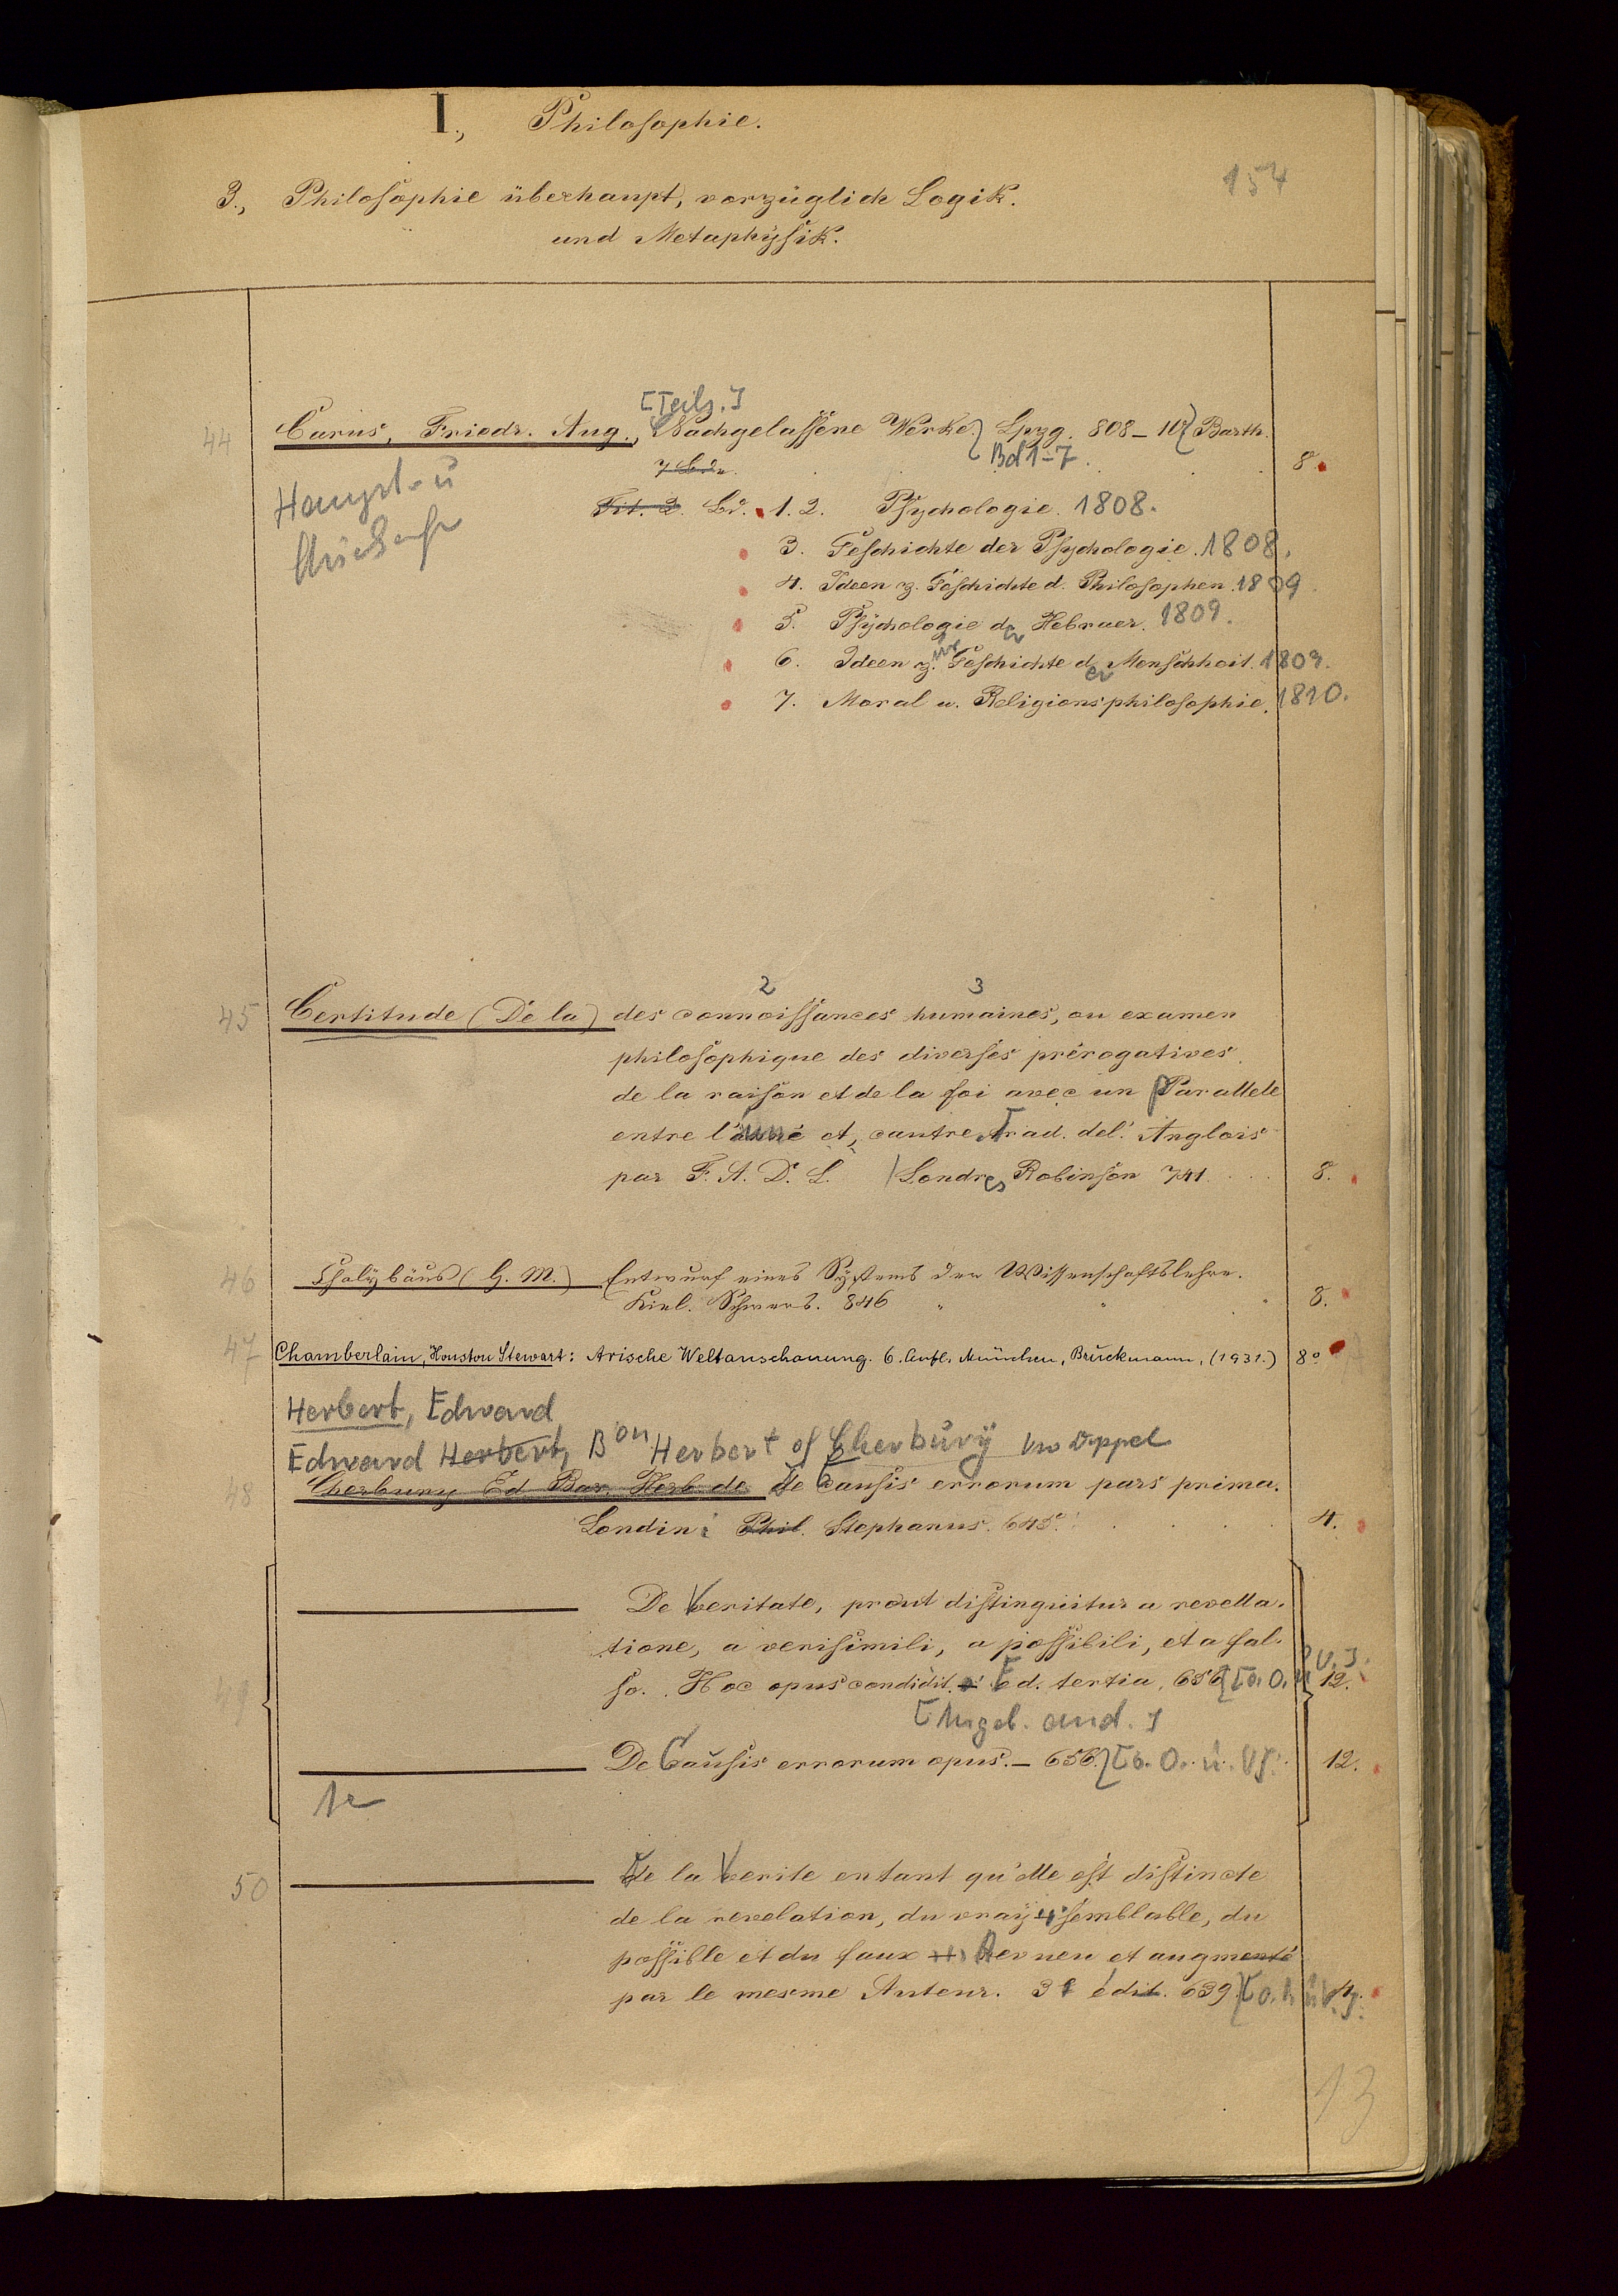 I., Philosophie.
154
3., Philosophie überhaupt, vorzüglich Logik.
und Metaphysik.
[Teils.]
44 Carus, Friedr. Aug., Nachgelassene Werke. Lpzg. 808-10 Barth.
7 Bde. Bd 1-7. 8.
Haupt- u
Tit. 2. Bd. 1. 2. Psychologie. 1808.
3. Geschichte der Psychologie. 1808.
4. Ideen z. Geschichte d. Philosophen. 1809.
5. Psychologie der Hebraer. 1809.
6. Ideen zur Geschichte der Menschheit. 1809.
7. Moral u. Religionsphilosophie. 1810.
2 3
45 Certitude (De la) des connoissances humaines, ou examen
philosophique des diverses prérogatives
de la raison et de la foi avec un Parallele
entre l' et, l'autre. Trad. del'. Anglois
par F. A. D. L. Londres Robinson 741. 8.
46 Chalybäus (H. M.) Entwurf eines Systems der Wissenschaftslehre.
Kiel. Schwers. 846 8.
47 Chamberlain, Houston Stewart: Arische Weltanschauung. 6. Aufl. München, Bruckmann, (1931.) 8°
Herbert, Edward
Edward Herbert, Bon Herbert of Cherbury
48 Cherbury Ed Bar. Herb. de De Causis errorum pars prima.
Londini Phil. Stephanus. 645. 4.
De Veritate, prout distinguitur a revella-
tione, a verisimili, a possibili, et a fal-
49 so. Hoc opus condidit. Ed. tertia. 656 [o. O. u V.] 12.
[Angeb. and.]
De Causis errorum opus. - 656. [o. O. u. V]. 12.
50 De la Verite entant qu'elle est distincte
de la revelation, du vray-semblable, du
possible et du faux Reuneu et augmenté
par le mesme Auteur. 3e édit. 639 [o. O u V.] 4.
13